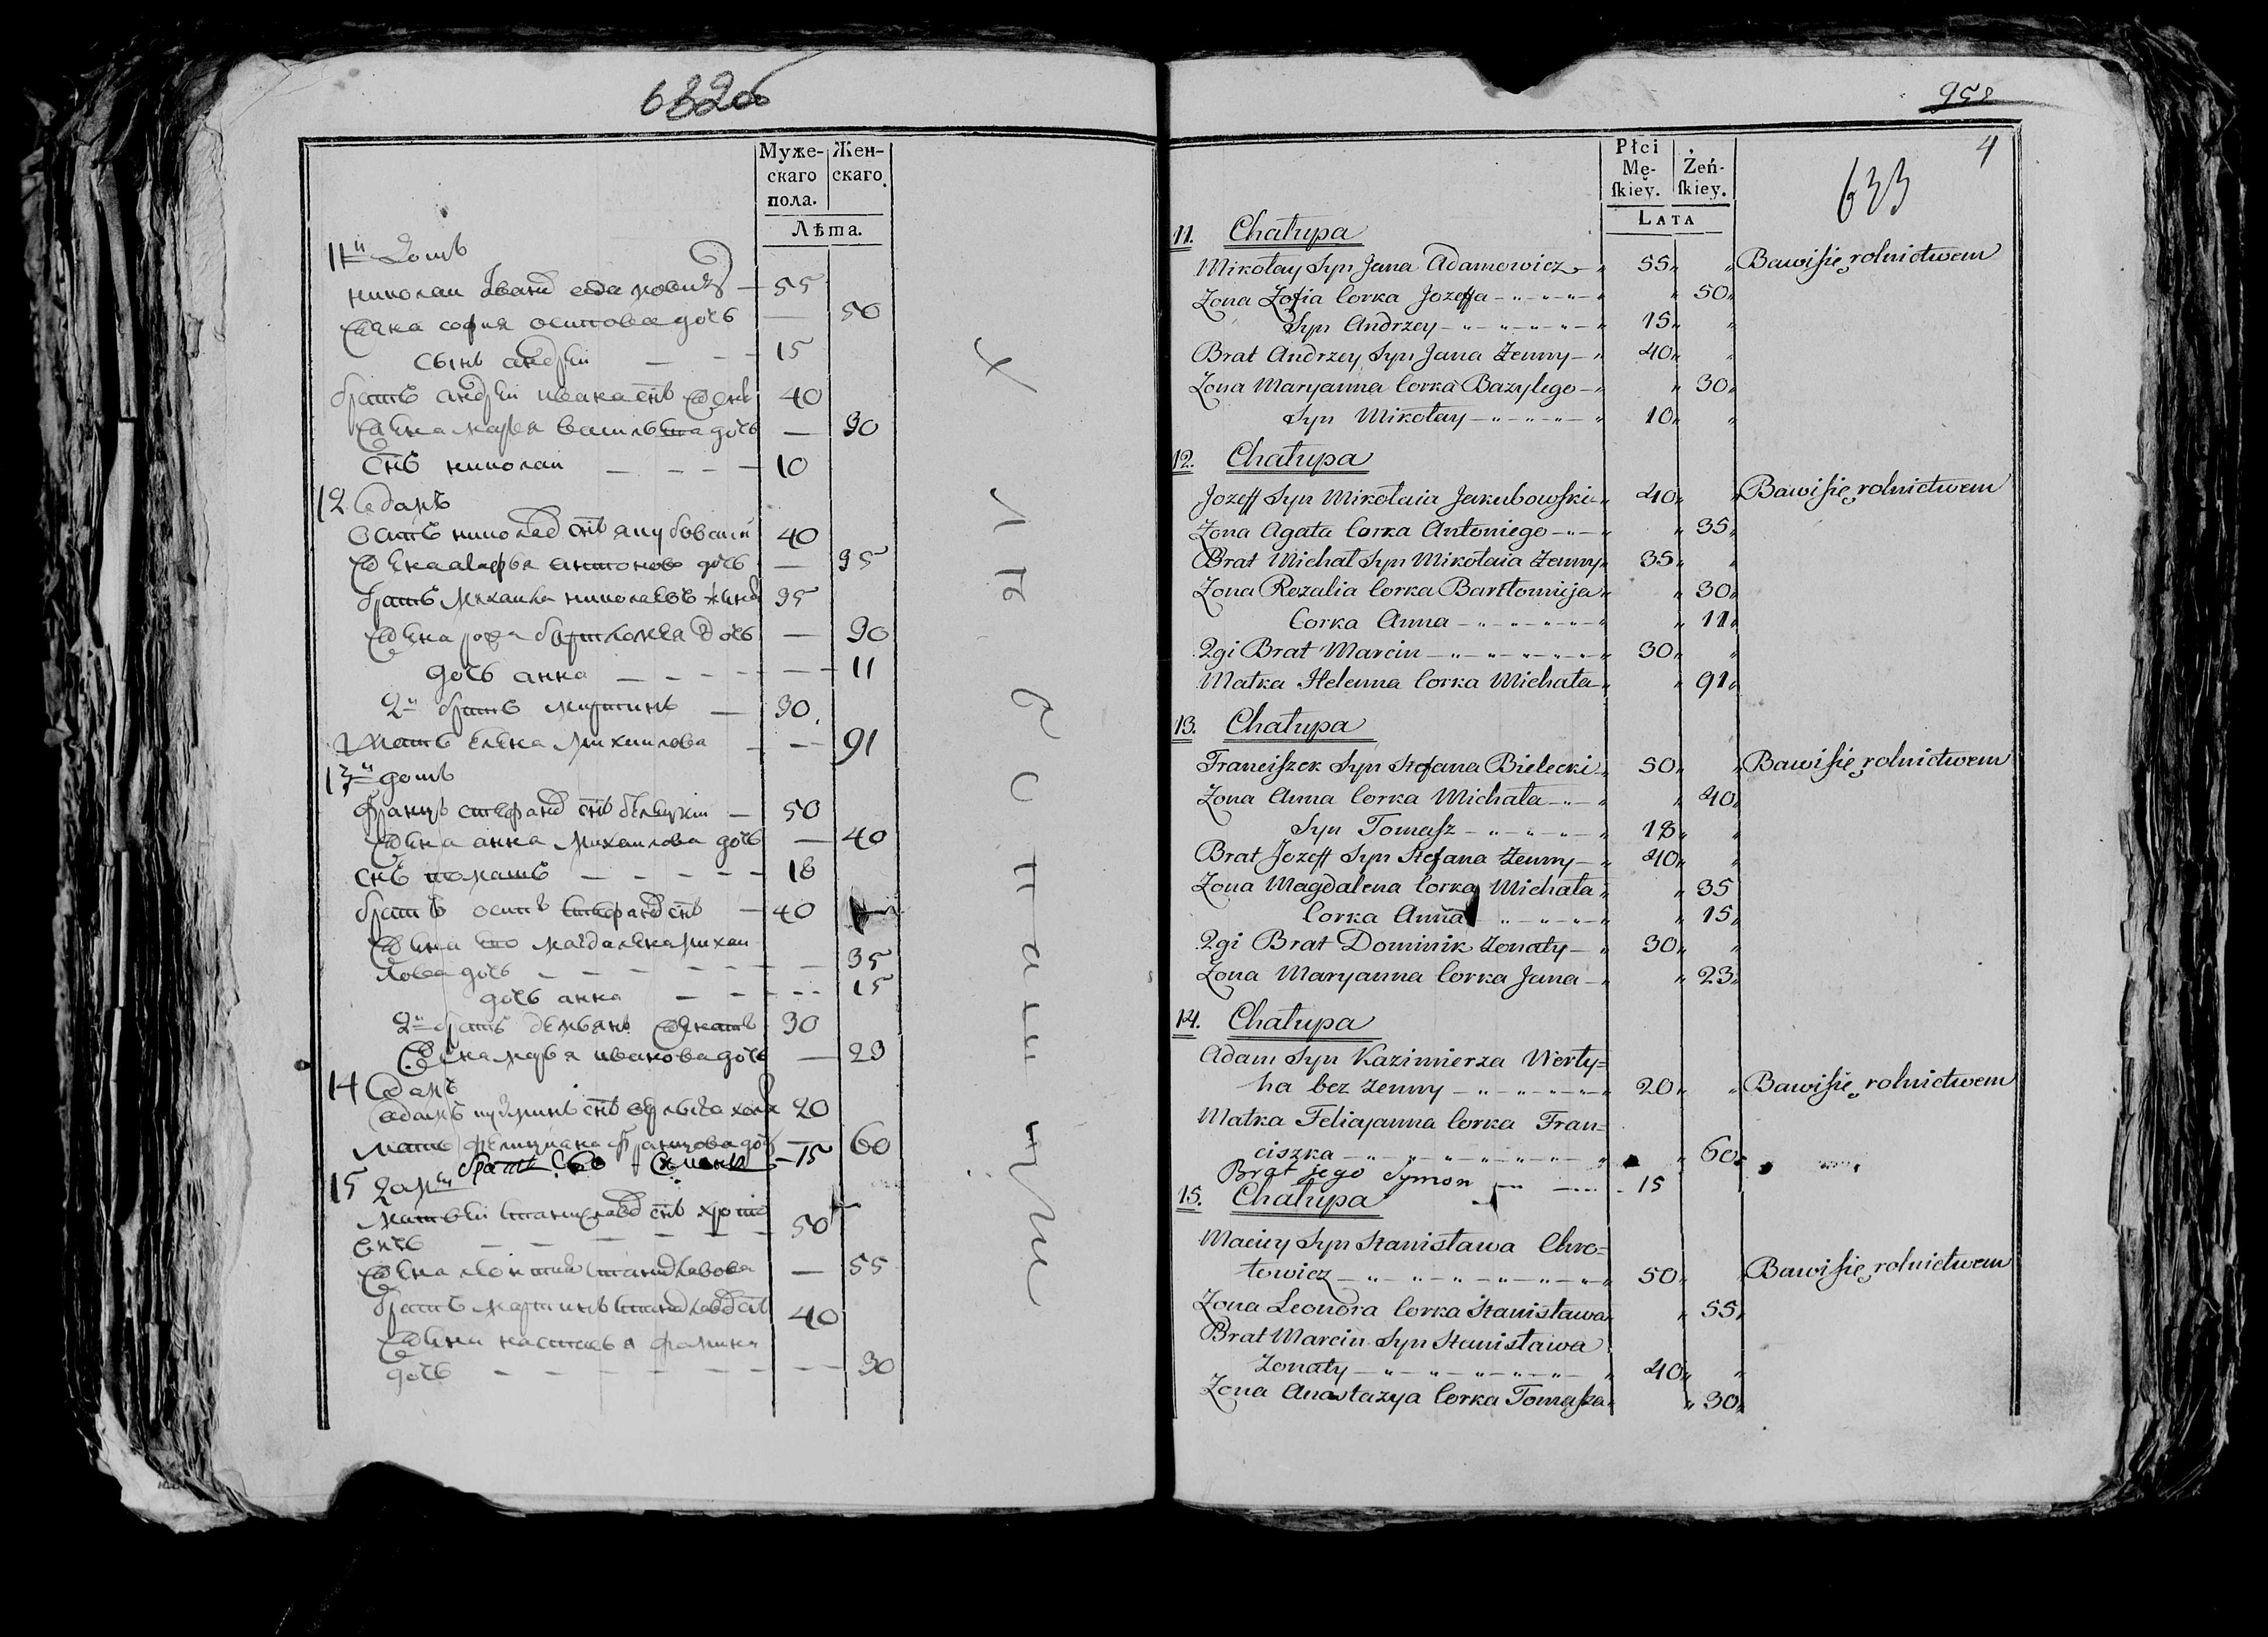 632об
Муже-
скаго
пола.
Жен-
скаго.
Лѣта.
11й Домъ
николаи Иванд адамовичъ — 55
Жена софия осипова дочь — 50
сынъ андреи — — 15
братъ андреи ивана снъ Жен 40
Жена марья василева дочь — 30
снъ николаи — — — — 10
12 домъ
осипъ николаев снъ якубовски 40
Жена агафья антонова дочь — 35
братъ михаила николаевъ жена 35
Жена роза бартломея дочь — 30
дочь анна — — — — 11
2й братъ мартинъ — 30
мать елена михаилова — — 91
13й домъ
францъ стефанд снъ белецки — 50
Жена анна михаилова дочь — 40
снъ томашъ — — — — — 18
братъ осипъ стефанд снъ — 40
Жена его магдалена михаи
лова дочь — — — — — — 35
дочь анна — — — — 15
2й братъ демьянъ Женатъ 30
Жена марья иванова дочь — 23
14 домъ
адамъ снъ 20
мать францова дочь — 60
братъ его семенъ — 15
15 домъ
матвеи станиславд снъ хрото
вичъ — — — — — — 50
Жена станиславова — 55
братъ мартинъ станиславд снъ 40
Жена настасья фомина
дочь — — — — — — — 30
958
4
633
Płci
Mę-
ſkiey.
Żeń-
ſkiey.
LATA
11. Chałupa
Mikołay Syn Jana Adamowicz 55 Bawi się rolnictwem
Zona Zofia Corka Jozeffa 50
Syn Andrzey 15
Brat Andrzey Syn Jana Zenny 40
Zona Maryanna Corka Bazylego 30
Syn Mikołay 10
12. Chałupa
Jozeff Syn Mikołaia Jakubowski 40 Bawi się rolnictwem
Zona Agata Corka Antoniego 35
Brat Michał Syn Mikołaia Zenny 35
Zona Rozalia Corka Bartłomieja 30
Corka Anna 11
2gi Brat Marcin 30
Matka Helenna Corka Michała 91
13. Chałupa
Franciſzek Syn Stefana Bielecki 50 Bawi się rolnictwem
Zona Anna Corka Michała 40
Syn Tomaſz 18
Brat Jozeff Syn Stefana Zenny 40
Zona Magdalena Corka Michała 35
Corka Anna 15
2gi Brat Dominik Zonaty 30
Zona Maryanna Corka Jana 23
14. Chałupa
Adam Syn Kazimierza Werty=
ha bez Zenny 20 Bawi się rolnictwem
Matka Feliajanna Corka Fran=
ciszka 60
Brat jego Symon 15
15. Chałupa
Maciey Syn Stanisława Chro=
towicz 50 Bawi się rolnictwem
Zona Leonora Corka Stanisława 55
Brat Marcin Syn Stanisława
Zonaty 40
Zona Anastazya Corka Tomaſza 30